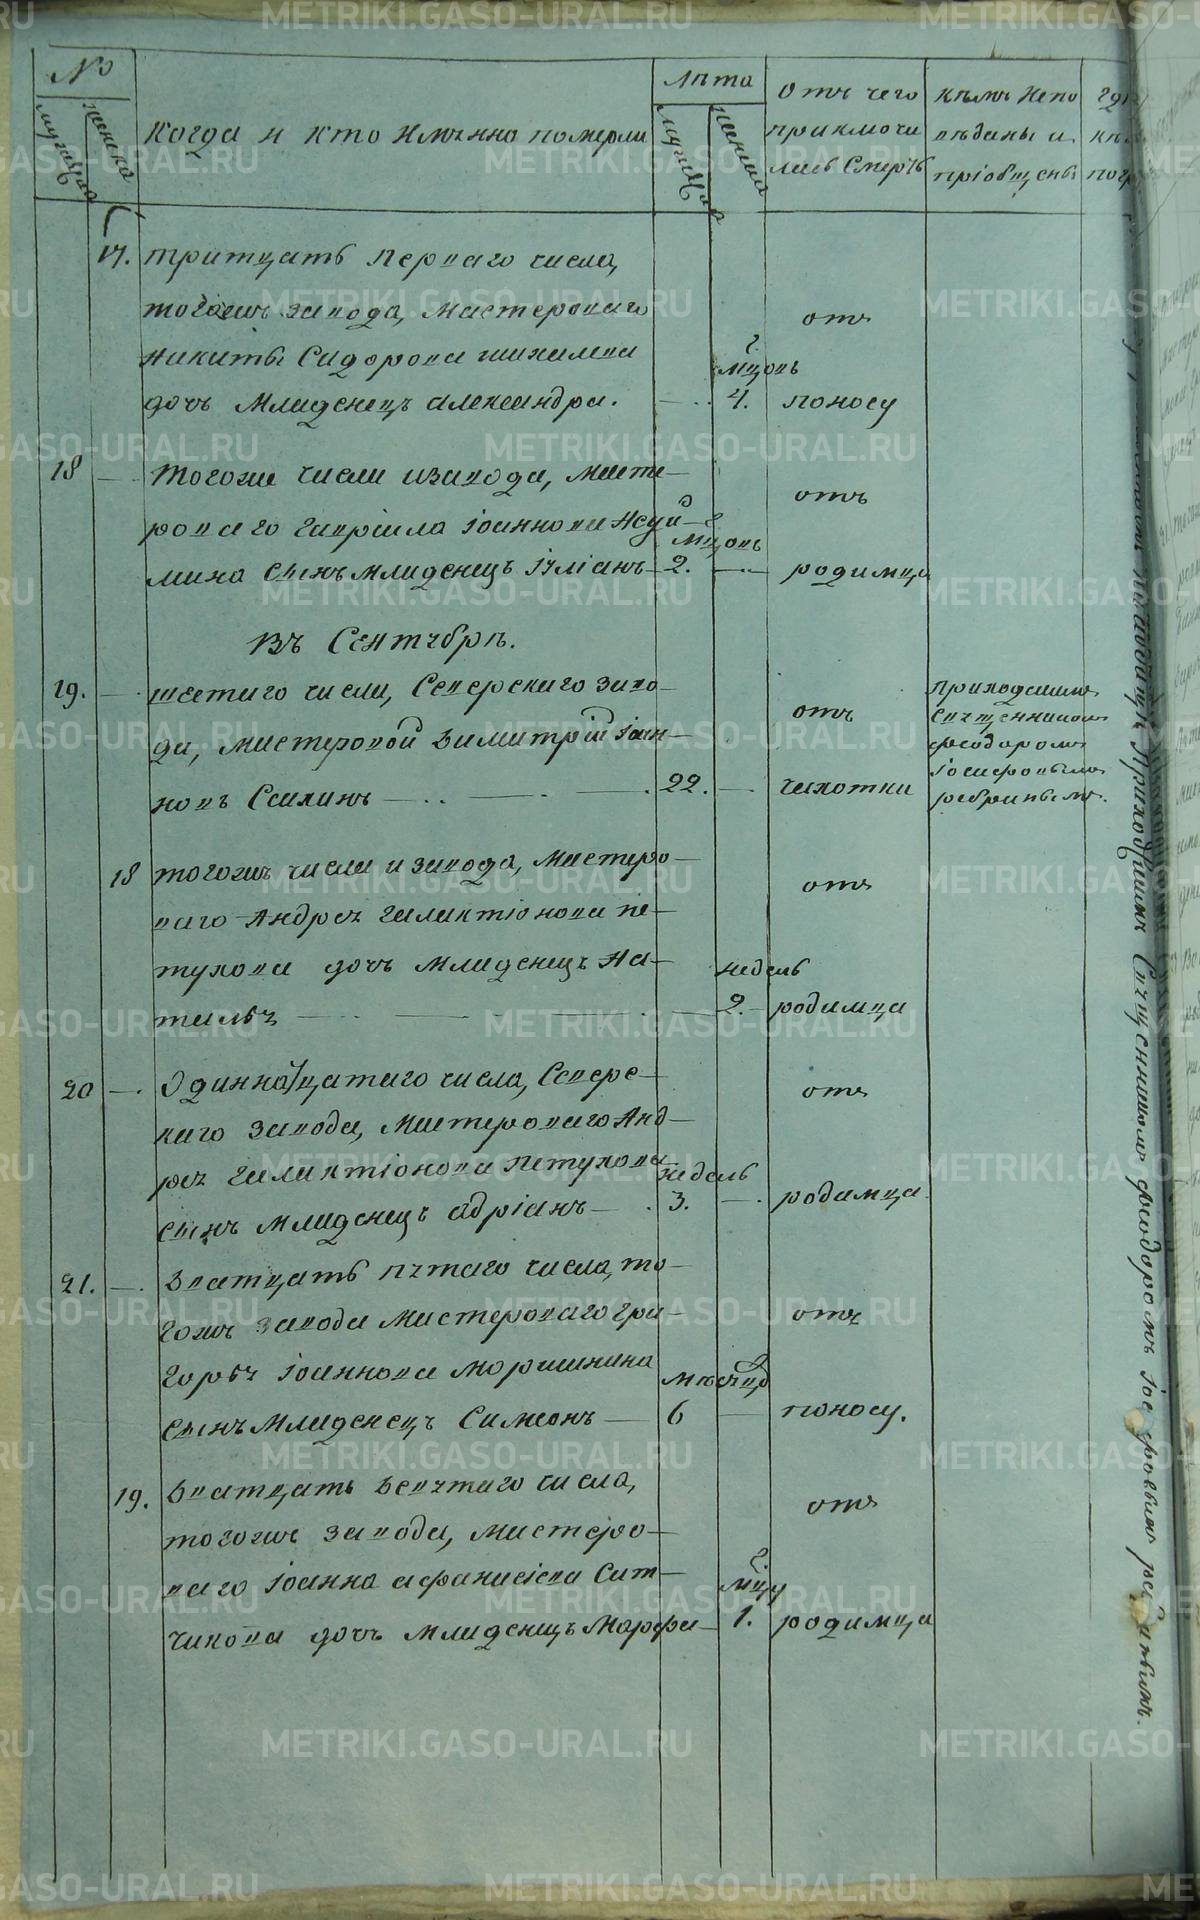 №
мужска
женска
Когда и кто Имѣнно померли
Лѣта
мужеска
женска
Отъ чего
приключи
лась Смерть
кѣмъ Испо
вѣданы и
пріобщены
17. тритцать перваго числа,
тогожъ завода, мастероваго
Никиты Сидорова
дочь Младенецъ александра.
мцовъ
4.
отъ
поносу
18 Тогоже числа изавода, масте
роваго Гавріила Іоаннова
мина сынъ младенецъ Іуліанъ
мцовъ
2.
отъ
родимца
Въ Сентябрѣ.
19. шестаго числа, Северскаго заво
да, мастеровой Димитрій Іоан
новъ
22.
отъ
чахотки
приходскимъ
священникомъ
феодоромъ
Іосифовымъ
18 тогожъ числа и завода, мастеро
ваго Андрея Галактіонова пе
тухова дочь младенецъ На
талья
недель
2.
отъ
родимца
20 Одиннадцатаго числа, Северс
каго завода, мастероваго Анд
рея Галактіонова петухова
сынъ младенецъ адріанъ
недель
3.
отъ
родимца.
21. Дватцать пятаго числа, то
гожъ завода мастероваго гри
горья Іоаннова
сынъ младенецъ Симеонъ
мѣсяцов
6
отъ
поносу.
19. Дватцать девятаго числа,
тогожъ завода, мастеро
ваго Іоанна афанасіева Сит
чикова дочь младенецъ Марфа
мцу
1.
отъ
родимца
Приходскимъ Священникомъ феодоромъ
METRIKI.GASO-URAL.RU